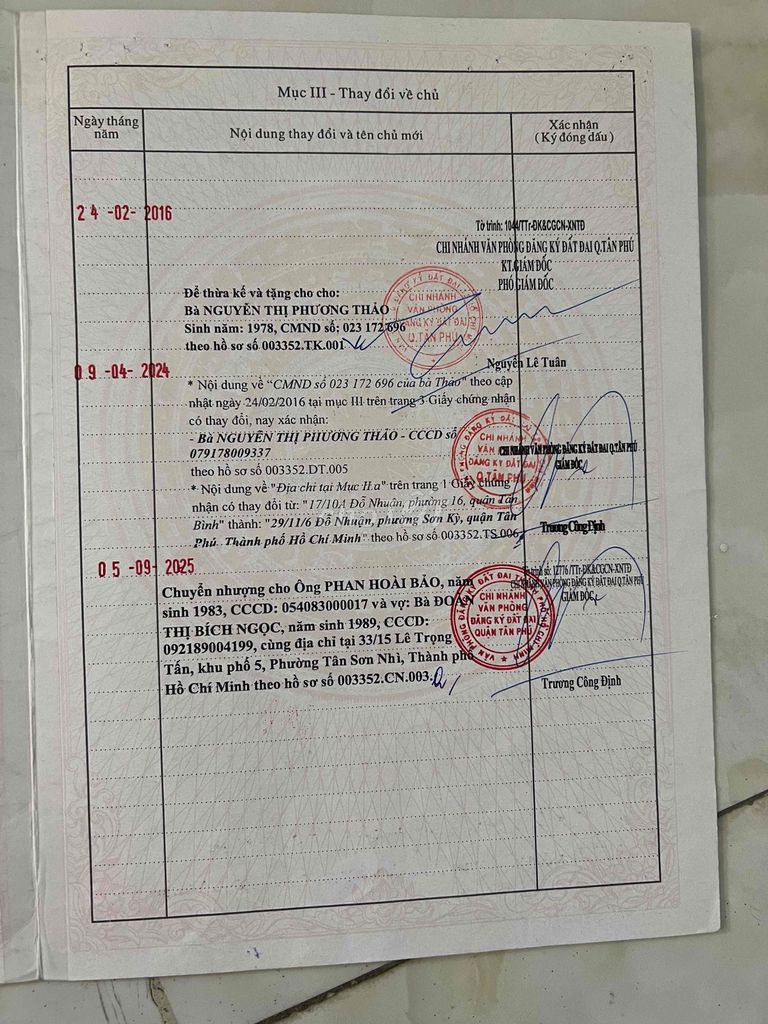 Mục III - Thay đổi về chủ
Ngày tháng năm
Nội dung thay đổi và tên chủ mới
Xác nhận
( Ký đóng dấu )
24 -02- 2016
Tờ trình: 1044/TTr-ĐK&CGCN-XNTĐ
CHI NHÁNH VĂN PHÒNG ĐĂNG KÝ ĐẤT ĐAI Q.TÂN PHÚ
KT.GIÁM ĐỐC
PHÓ GIÁM ĐỐC
Để thừa kế và tặng cho cho:
Bà NGUYỄN THỊ PHƯƠNG THẢO
Sinh năm: 1978, CMND số: 023 172 696
theo hồ sơ số 003352.TK.001
CHI NHÁNH
VĂN PHÒNG
ĐĂNG KÝ ĐẤT ĐAI
Q.TÂN PHÚ
Nguyễn Lê Tuân
09 -04- 2024
* Nội dung về "CMND số 023 172 696 của bà Thảo" theo cập
nhật ngày 24/02/2016 tại mục III trên trang 3 Giấy chứng nhận
có thay đổi, nay xác nhận:
- Bà NGUYỄN THỊ PHƯƠNG THẢO - CCCD số
079178009337
theo hồ sơ số 003352.DT.005
* Nội dung về "Địa chỉ tại Mục II.a" trên trang 1 Giấy chứng
nhận có thay đổi từ: "17/10A Đỗ Nhuận, phường 16, quận Tân
Bình" thành: "29/11/6 Đỗ Nhuận, phường Sơn Kỳ, quận Tân
Phú, Thành phố Hồ Chí Minh" theo hồ sơ số 003352.TS.006
CHI NHÁNH
VĂN PHÒNG
ĐĂNG KÝ ĐẤT ĐAI
Q.TÂN PHÚ
CHI NHÁNH VĂN PHÒNG ĐĂNG KÝ ĐẤT ĐAI Q.TÂN PHÚ
GIÁM ĐỐC
Trương Công Định
05 -09- 2025
Tờ trình số: 12776 /TTr-ĐK&CGCN-XNTĐ
CHI NHÁNH VĂN PHÒNG ĐĂNG KÝ ĐẤT ĐAI Q.TÂN PHÚ
GIÁM ĐỐC
Chuyển nhượng cho Ông PHAN HOÀI BẢO, năm
sinh 1983, CCCD: 054083000017 và vợ: Bà ĐOÀN
THỊ BÍCH NGỌC, năm sinh 1989, CCCD:
092189004199, cùng địa chỉ tại 33/15 Lê Trọng
Tấn, khu phố 5, Phường Tân Sơn Nhì, Thành phố
Hồ Chí Minh theo hồ sơ số 003352.CN.003.
VĂN PHÒNG ĐĂNG KÝ ĐẤT ĐAI THÀNH PHỐ HỒ CHÍ MINH
CHI NHÁNH
VĂN PHÒNG
ĐĂNG KÝ ĐẤT ĐAI
QUẬN TÂN PHÚ
Trương Công Định